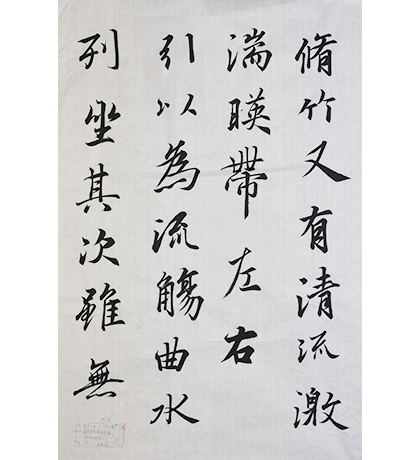 脩竹又有清流激
湍暎帶左右
引以為流觴曲水
列坐其次雖無